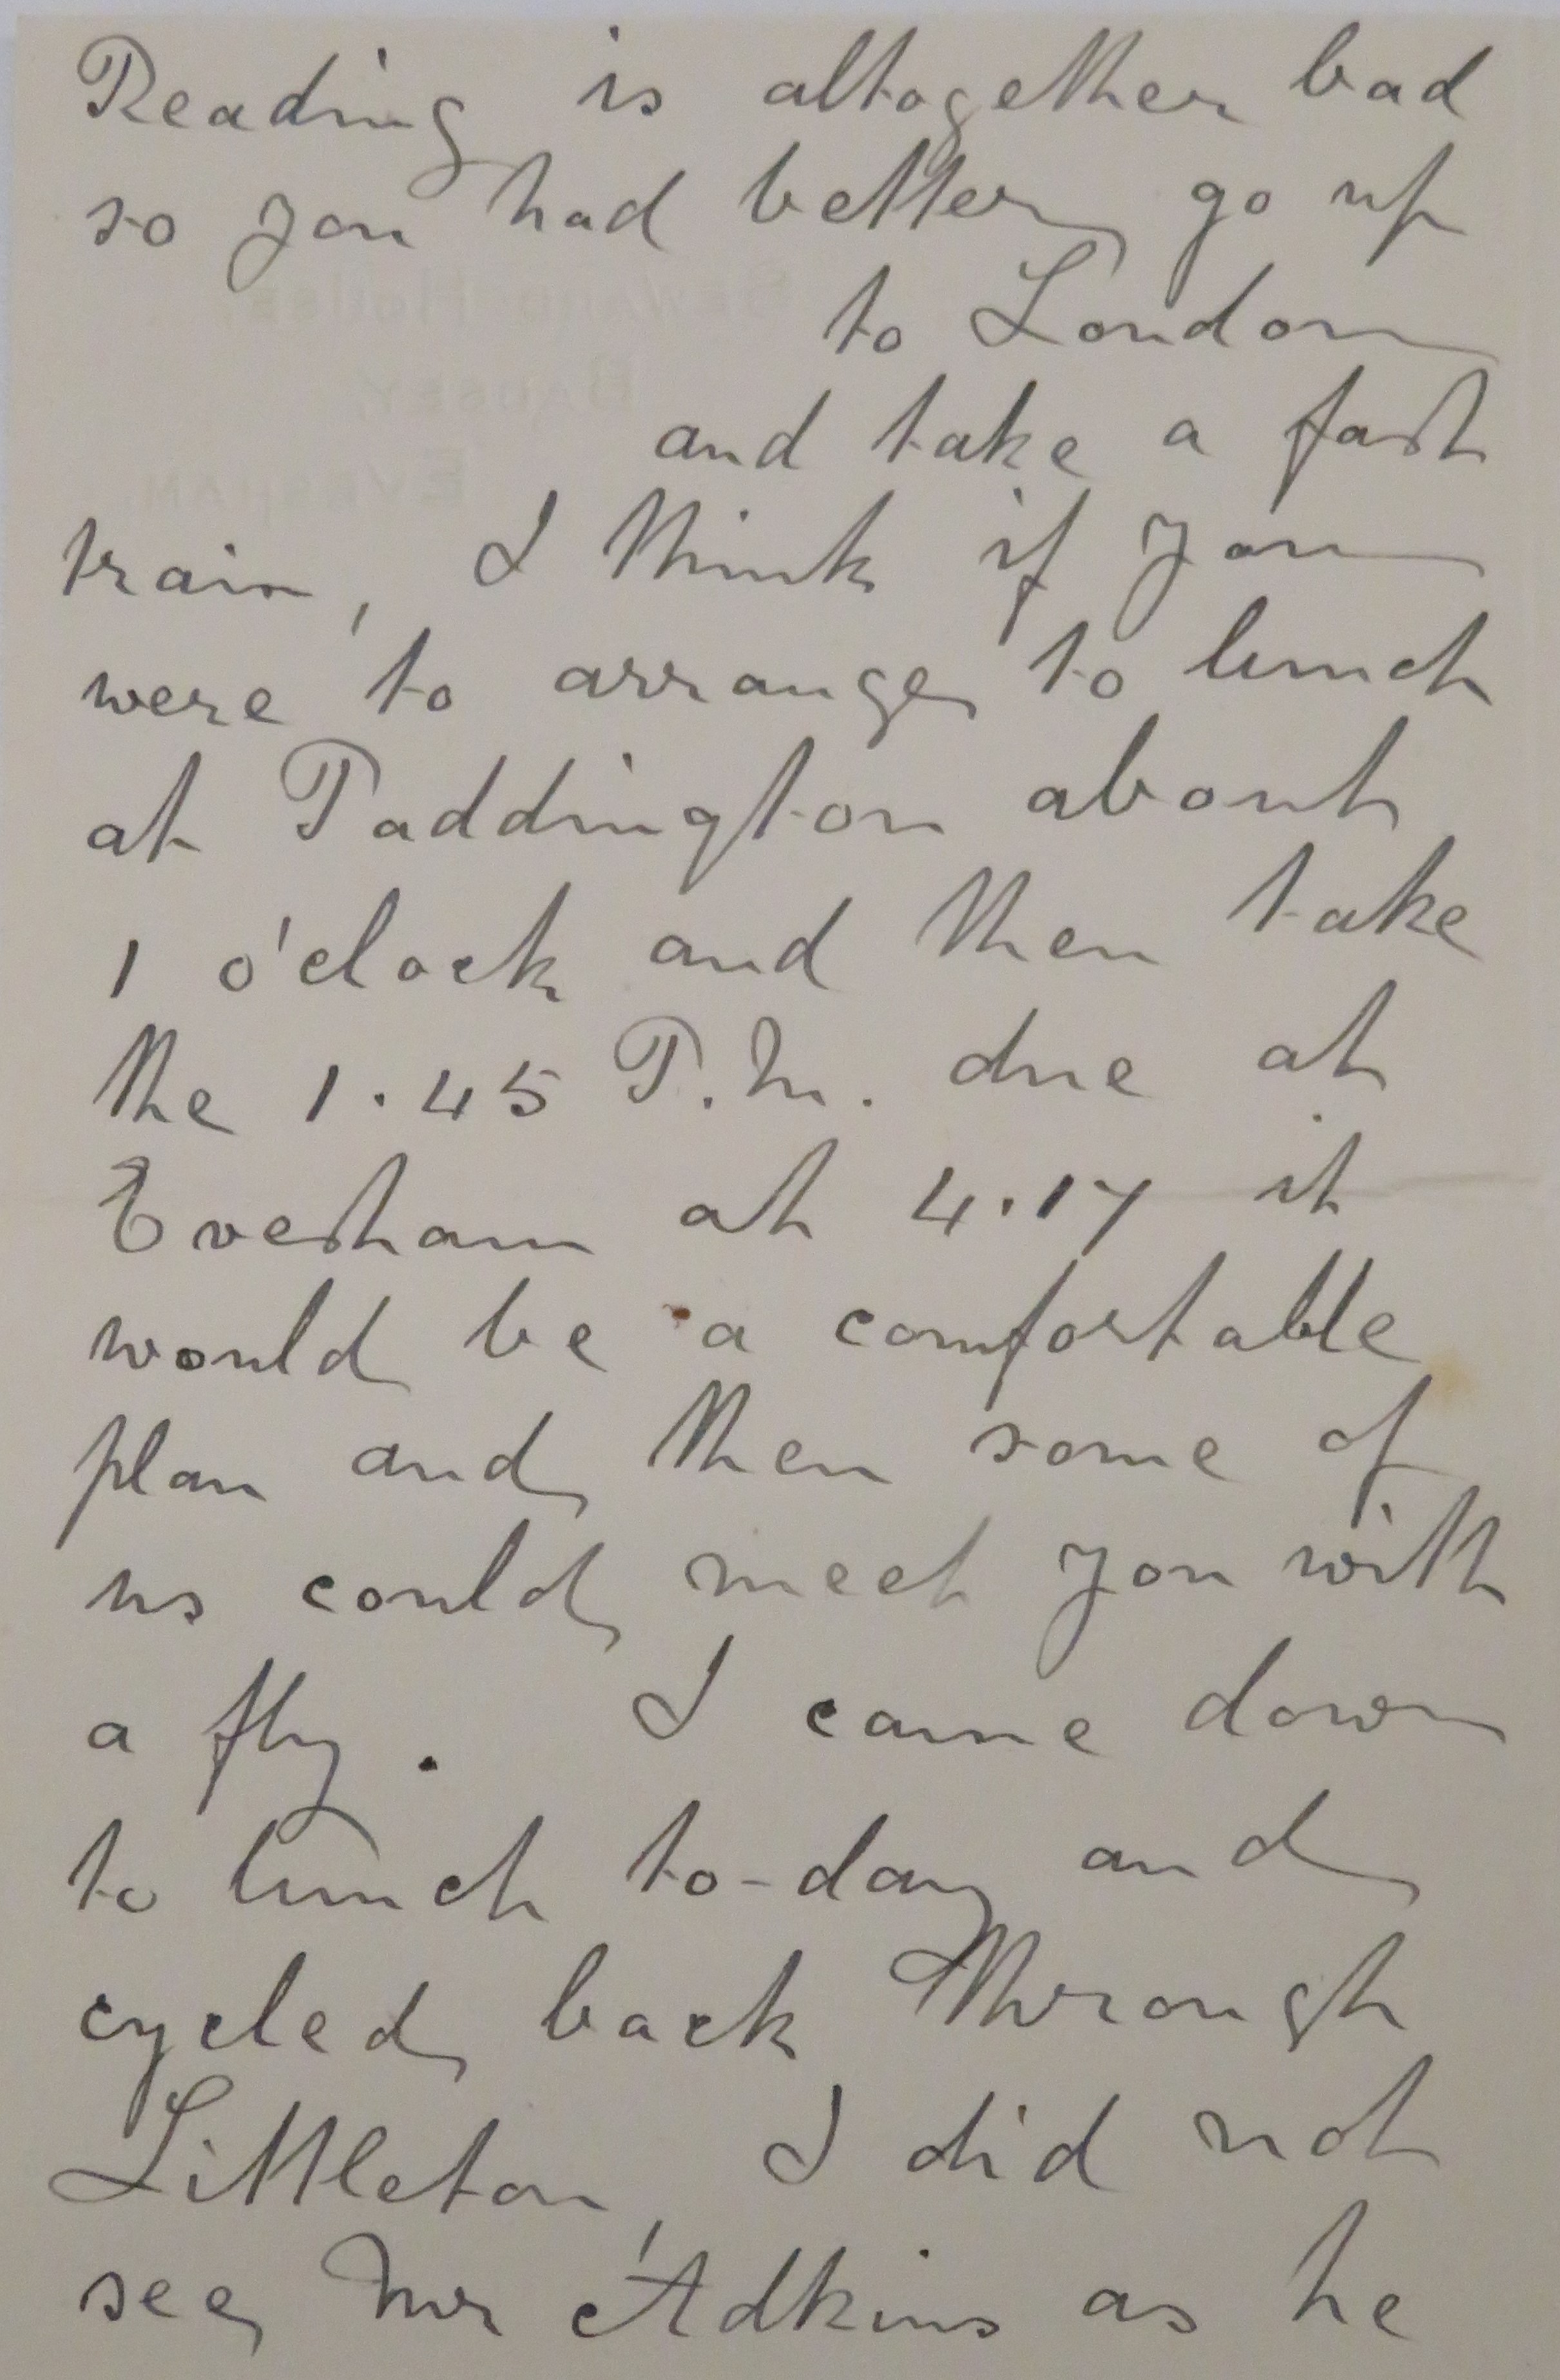 Reading is altogether bad
so you had better go up
to London
and take a fast
train, I think if you
were to arrange to lunch
at Paddington about
1 o'clock and then take
the 1.45 P.M. due at
Evesham at 4.17 it
would be a comfortable
plan and then some of
us could meet you with
a fly. I came down
to lunch to-day and
cycled back through
Littleton, I did not
see Mr Adkins as he